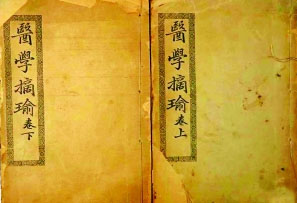 醫學摘瑜卷上
醫學摘瑜卷下